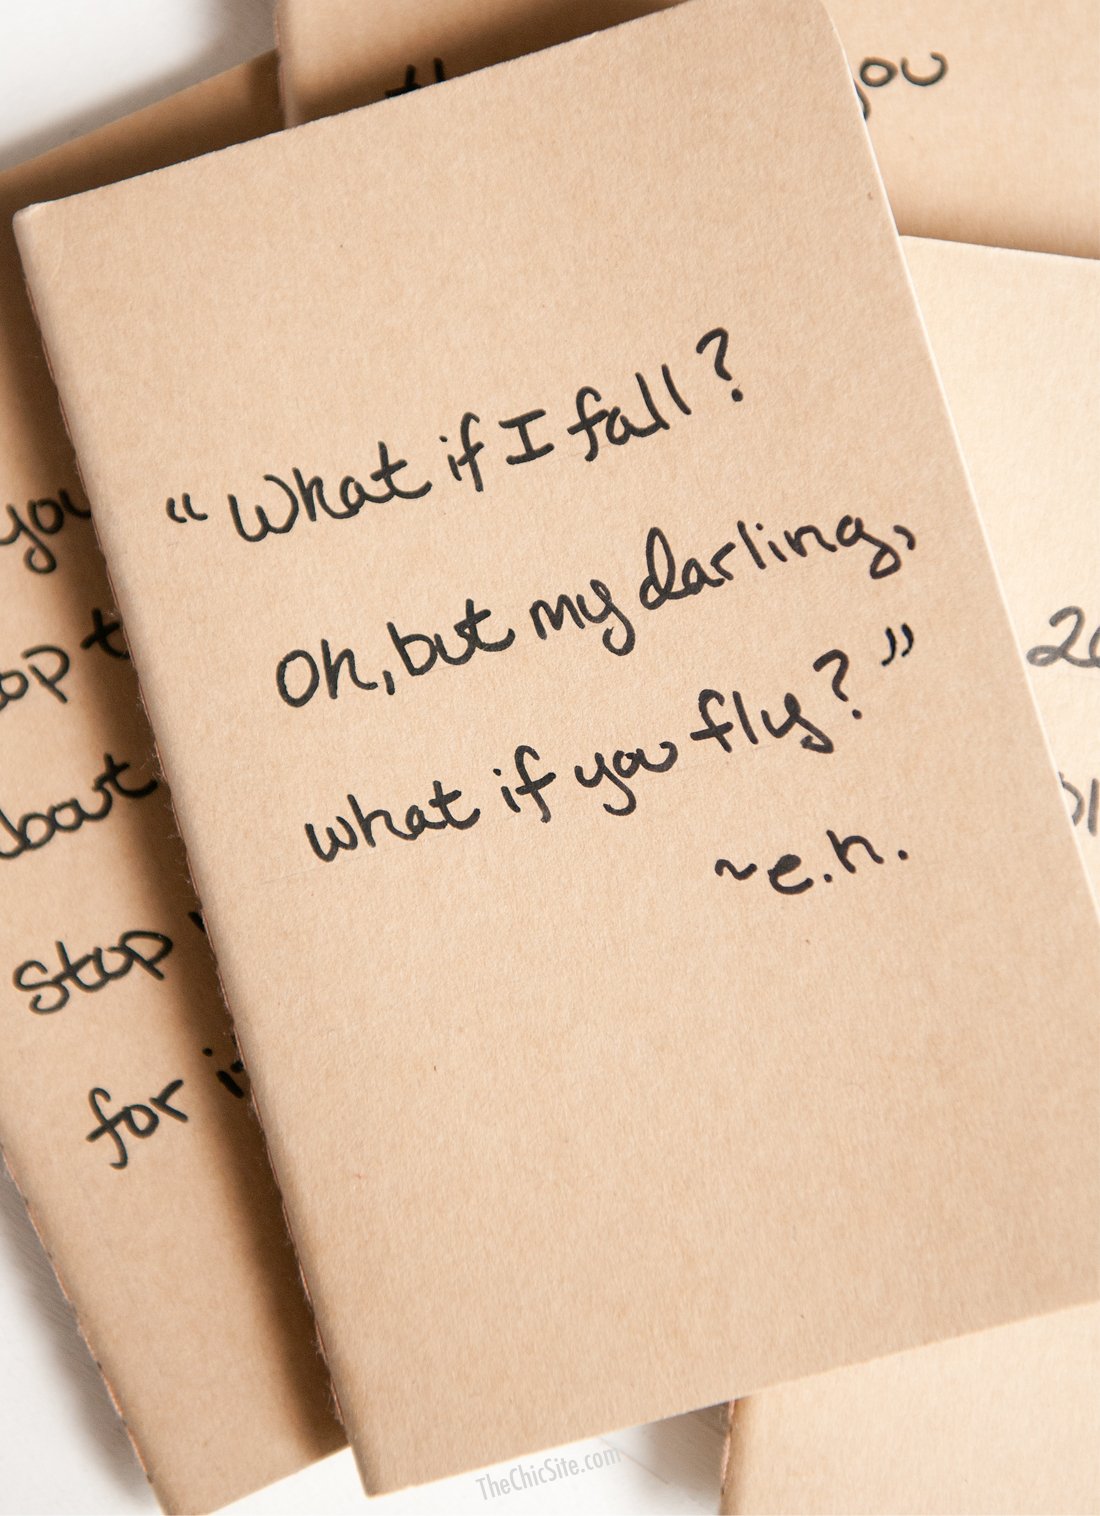 you
"What if I fall?
Oh, but my darling,
what if you fly?"
~e.h.
you
stop
for
TheChicSite.com